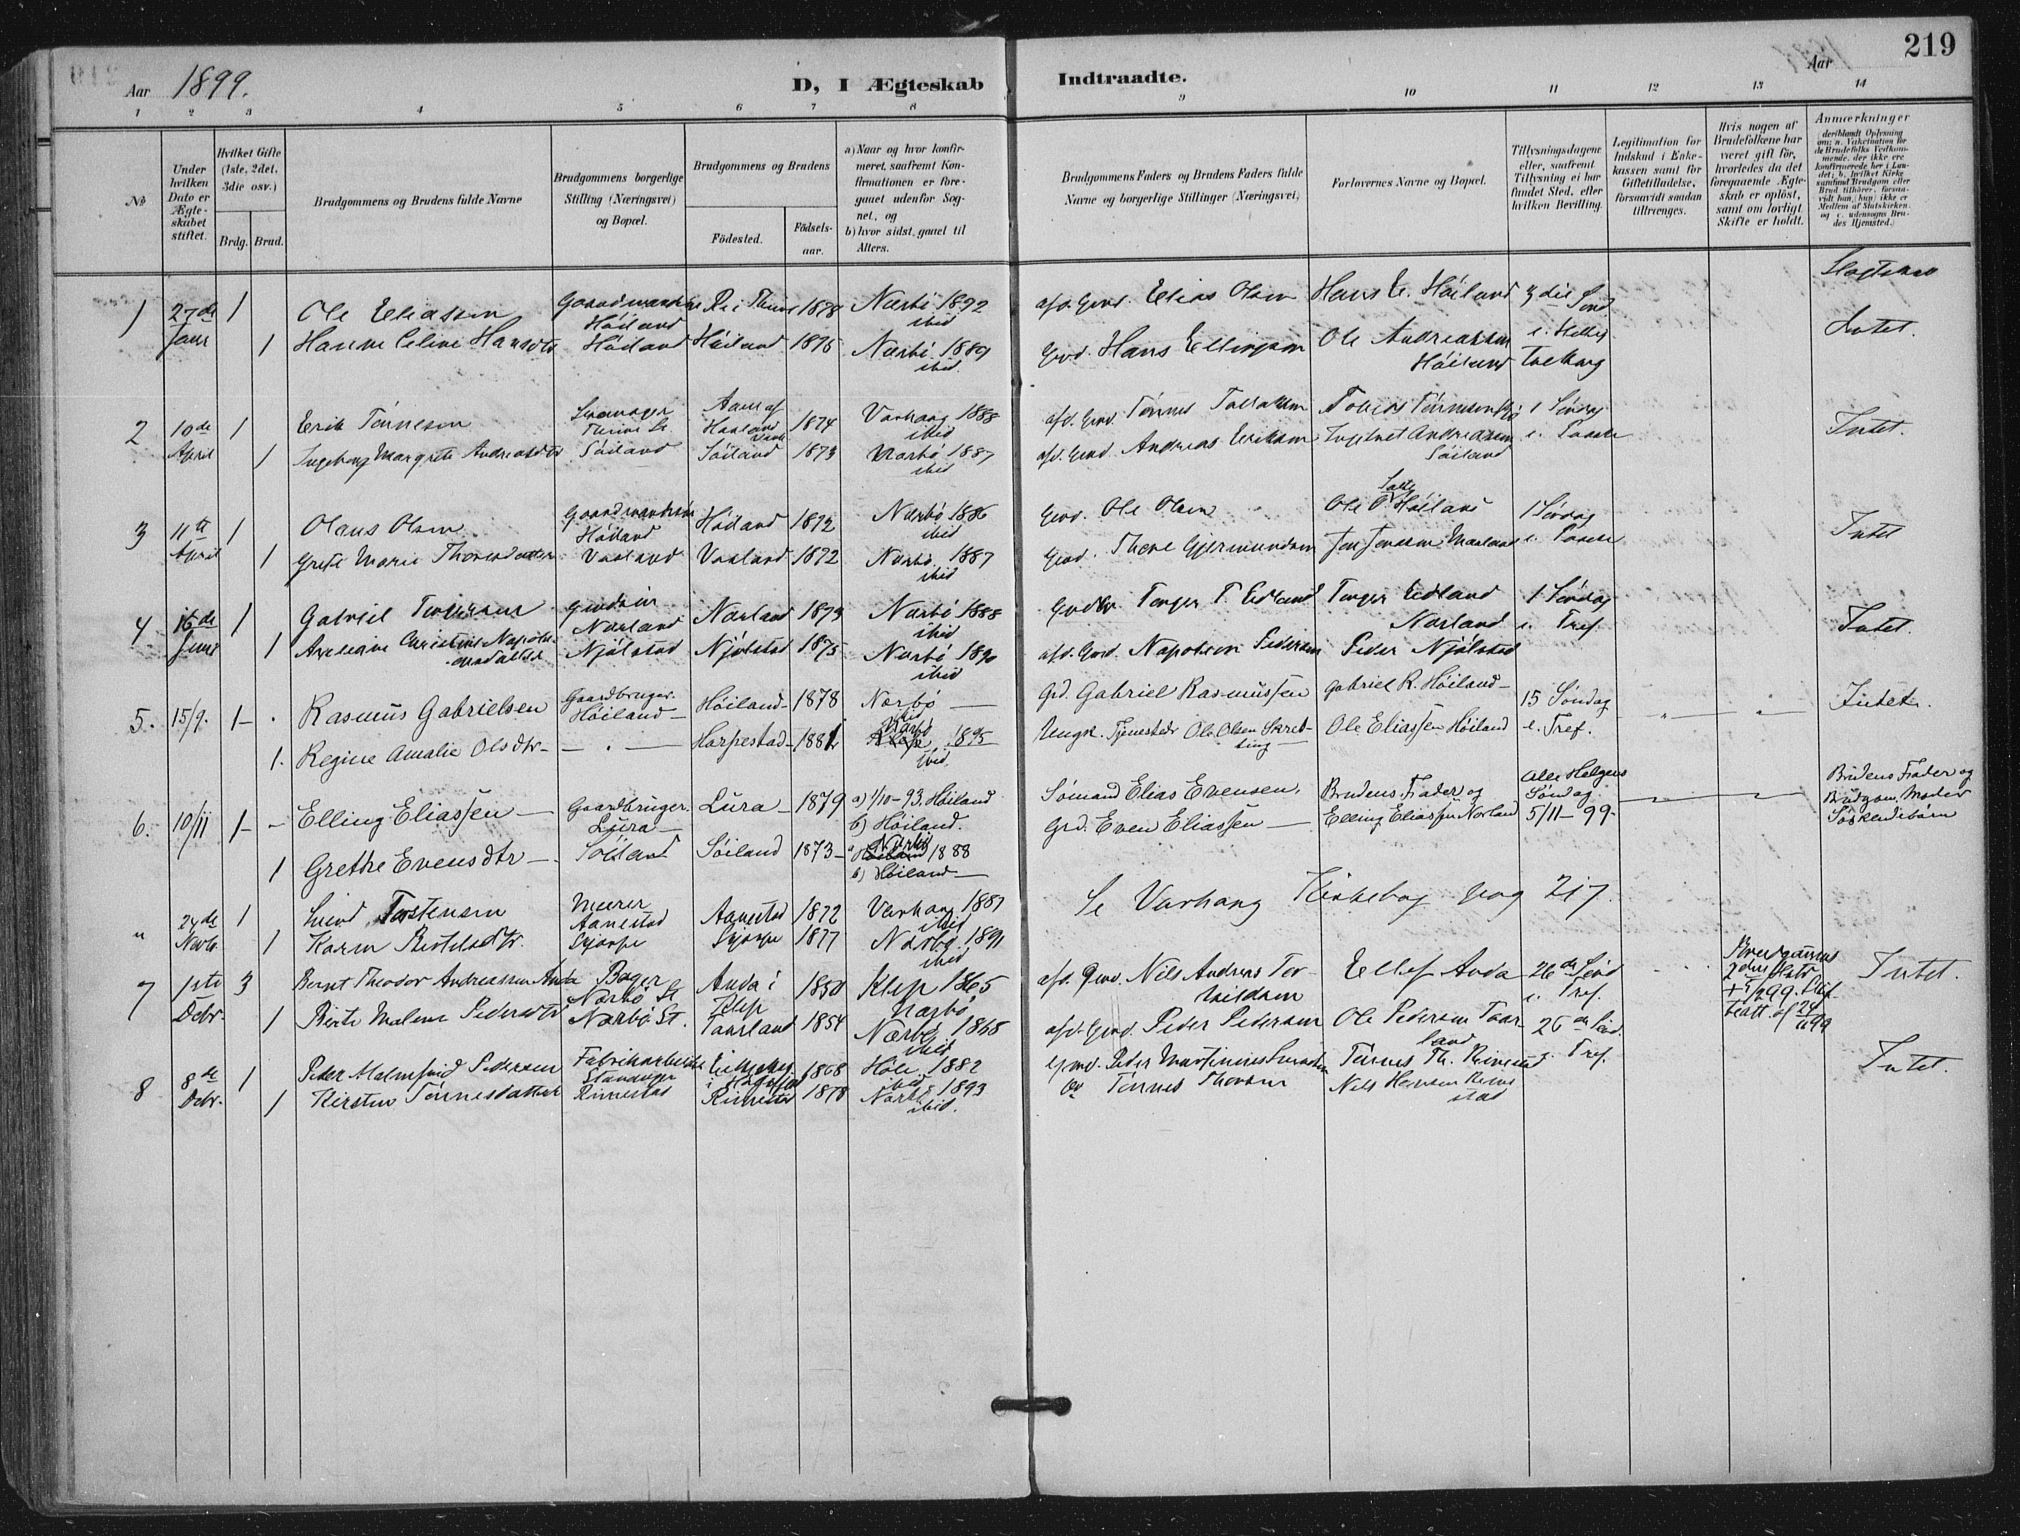 Aar 1899.
D, I Ægteskab Indtraadte.
Aar
219
1 2 3 4 5 6 7 8 9 10 11 12 13 14
No
Under hvilken Dato er Ægteskabet stiftet.
Hvilket Gifte (1ste, 2det, 3die osv.)
Brdg. Brud.
Brudgommens og Brudens fulde Navne
Brudgommens borgerlige Stilling (Næringsvei) og Bopæl.
Brudgommens og Brudens
Fødested. Fødsels-aar.
a) Naar og hvor konfirmeret, saafremt Konfirmationen er foregaaet udenfor Sognet, og
b) hvor sidst gaaet til Alters.
Brudgommens Faders og Brudens Faders fulde Navne og borgerlige Stillinger (Næringsvei)
Forlovernes Navne og Bopæl.
Tillysningsdagene eller, saafremt Tillysning ei har fundet Sted, efter hvilken Bevilling.
Legitimation for Indskud i Enkekassen samt for Giftetilladelse, forsaavidt saadan tiltrænges.
Hvis nogen af Brudefolkene har været gift før, hvorledes da det foregaaende Ægteskab er opløst, samt om lovligt Skifte er holdt.
Anmærkninger
deriblandt Oplysning om: a. Vakcination for de Brudefolks Vedkommende, der ikke ere konfirmerede her i Landet; b. hvilket Kirkesamfund Brudgom eller Brud tilhører, forsaavidt han (hun) ikke er Medlem af Statskirken og c. udensogns Brudes Hjemsted.
1 27de Janr 1 Ole Eliasen Gaardmandssøn Høiland 1878 Nærbø 1892 ibid afd. Grd. Elias Olsen Hans E. Høiland 3die Sønd
1 Hanne Celine Hansdtr Høiland Høiland 1875 Nærbø 1889 ibid Grd. Hans Ellingsen Ole Andreassen Høiland Intet.
2 10de April 1 Erik Tønnesen 1874 Varhaug 1888 ibid afd. Grd. Tønnes 1 Søndag
1 Ingeborg Margrete Andreasdtr Søiland Søiland 1873 Nærbø 1887 ibid afd. Grd. Andreas Eriksen Andreassen Søiland e. Paaske Intet.
3 11te April 1 Olaus Olsen Gaardmandssøn Høiland Høiland 1872 Nærbø 1886 ibid Grd. Ole Olsen Ole O. Høiland 1 Søndag
1 Grete Marie Thoresdatter Vaaland Vaaland 1872 Nærbø 1887 ibid Grd. Thore Gjermundsen Jon Jonassen e. Paaske Intet
4 16de Juni 1 Gabriel Torgersen Nærland Nærland 1873 Nærbø 1888 ibid Torger T. Edland Torger Edland Nærland 1 Søndag e. Tref.
1 Christine Napoleonsdatter Njølstad Njølstad 1875 Nærbø 1890 ibid afd. Grd. Napoleon Pedersen Peder Njølstad Intet.
5. 15/9. 1 - Rasmus Gabrielsen Gaardbruger. Høiland - Høiland - 1878 Nærbø - Grd. Gabriel Rasmussen Gabriel R. Høiland - 15 Søndag e. Tref. Intet.
1. Regine Amalie Olsdtr - Harpestad - 1881 Nærbø 1895 ibid. Ungk. Tjenestedr. Ole Olsen Skretting - Ole Eliassen Høiland
6. 10/11 1 - Elling Eliassen - Gaardbruger. Lura - Lura - 1879 a) 1/10-93. Høiland b) Høiland. Sømand Elias Evensen. Brudens Fader og Alle Helgens Søndag 5/11-99. Brudens Fader og Brudgom. Moder Søskendebørn
1 Grethe Evensdtr - Søiland Søiland 1873 - a) Nærbø 1888 b) Høiland - Grd. Even Eliassen - Elling Eliassen Nærland
" 24de Novbr. 1 Torstensen Murer Aanestad Aanestad 1872 Varhaug 1887 ibid Se Varhaug Kirkebog pag 217.
1 Karen Bertelsdtr. 1877 Nærbø 1891 ibid
7 1ste Decbr. 3 Bernt Theodor Andreassen Anda Bager Nærbø St Anda i Klep 1850 Klep 1865 Nærbø afd. Grd. Nils Andreas Torkildsen Ellef Anda 26de Sønd e. Tref. Brudgommens 2den Hustr. Intet.
1 Berte Malene Pedersdtr Nærbø St. Taarland 1854 Nærbø 1868 ibid afd. Grd. Peder Pedersen Ole Pedersen Taarland 26de Sønd. e. Tref.
8 8de Decbr. 1 Peder Malmfred Pedersen Fabrikarbeider Stavanger 1868 Høle 1882 ibid Peder Martinius Tønnes Th. Rimestad Intet.
1 Kirsten Tønnesdatter Rimestad Rimestad 1878 Nærbø 1893 ibid. Tønnes Thorsen Nils Hansen Rimestad